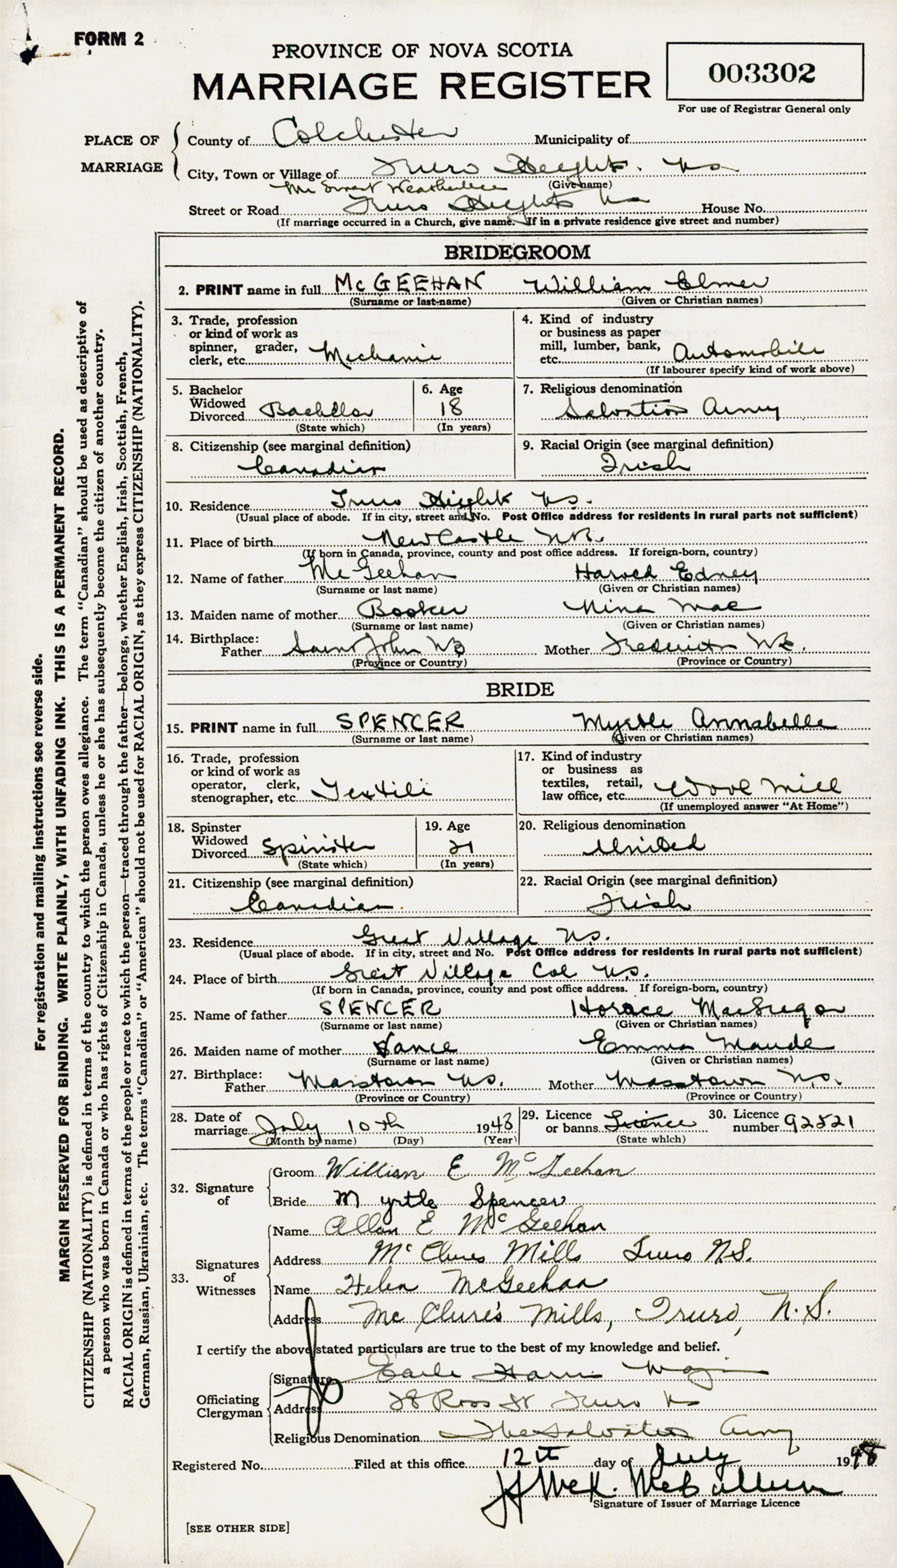 FORM 2
PROVINCE OF NOVA SCOTIA
MARRIAGE REGISTER
003302
For use of Registrar General only
PLACE OF MARRIAGE
County of Colchester Municipality of
City, Town or Village of Truro Heights. NS
(Give name)
Mr Weatherbee
Street or Road Truro Heights NS House No.
(If marriage occurred in a Church, give name. If in a private residence give street and number)
BRIDEGROOM
2. PRINT name in full McGEEHAN William Elmer
(Surname or last name) (Given or Christian names)
3. Trade, profession or kind of work as spinner, grader, clerk, etc. Mechanic
4. Kind of industry or business as paper mill, lumber, bank, etc. Automobile
(If labourer specify kind of work above)
5. Bachelor Widowed Divorced Bachelor
(State which)
6. Age 18
(In years)
7. Religious denomination
Salvation Army
8. Citizenship (see marginal definition)
Canadian
9. Racial Origin (see marginal definition)
Irish
10. Residence Truro Heights NS.
(Usual place of abode. If in city, street and No. Post Office address for residents in rural parts not sufficient)
11. Place of birth NewCastle NB.
(If born in Canada, province, county and post office address. If foreign-born, country)
12. Name of father McGeehan Harold Edney
(Surname or last name) (Given or Christian names)
13. Maiden name of mother Booker Nina Mae
(Surname or last name) (Given or Christian names)
14. Birthplace:
Father Saint John NB Mother Fredericton NB.
(Province or Country) (Province or Country)
BRIDE
15. PRINT name in full SPENCER Myrtle Annabelle
(Surname or last name) (Given or Christian names)
16. Trade, profession or kind of work as operator, clerk, stenographer, etc. Textili
17. Kind of industry or business as textiles, retail, law office, etc. Wool Mill
(If unemployed answer "At Home")
18. Spinster Widowed Divorced Spinster
(State which)
19. Age 21
(In years)
20. Religious denomination
United
21. Citizenship (see marginal definition)
Canadian.
22. Racial Origin (see marginal definition)
Irish
23. Residence Great Village NS.
(Usual place of abode. If in city, street and No. Post Office address for residents in rural parts not sufficient)
24. Place of birth Great Village Col NS.
(If born in Canada, province, county and post office address. If foreign-born, country)
25. Name of father SPENCER Horace MacGregor
(Surname or last name) (Given or Christian names)
26. Maiden name of mother Vance Emma Maude
(Surname or last name) (Given or Christian names)
27. Birthplace:
Father Masstown NS. Mother Masstown NS.
(Province or Country) (Province or Country)
28. Date of marriage July 10th 1948
(Month by name) (Day) (Year)
29. Licence or banns Licence
(State which)
30. Licence number 92521
32. Signature of
Groom William E McGeehan
Bride Myrtle Spencer
33. Signatures of Witnesses
Name Allan E McGeehan
Address McClures Mills Truro N.S.
Name Helen McGeehan
Address McClure's Mills, Truro, N.S.
I certify the above stated particulars are true to the best of my knowledge and belief.
Officiating Clergyman
Signature Earle Harris
Address 28 Ross St Truro NS
Religious Denomination The Salvation Army
Registered No. Filed at this office 12th day of July 1948
J McK. McCallum
Signature of Issuer of Marriage Licence
[SEE OTHER SIDE]
For registration and mailing instructions see reverse side.
MARGIN RESERVED FOR BINDING. WRITE PLAINLY, WITH UNFADING INK. THIS IS A PERMANENT RECORD.
CITIZENSHIP (NATIONALITY) is defined in terms of the country to which the person owes allegiance. The term "Canadian" should be used as descriptive of
a person who was born in Canada or who has rights of Citizenship in Canada, unless he or she has subsequently become the citizen of another country.
RACIAL ORIGIN is defined in terms of the people or race to which the person—traced through the father—belongs, whether English, Irish, Scottish, French,
German, Russian, Ukrainian, etc. The terms "Canadian" or "American" should not be used for RACIAL ORIGIN, as they express CITIZENSHIP (NATIONALITY).